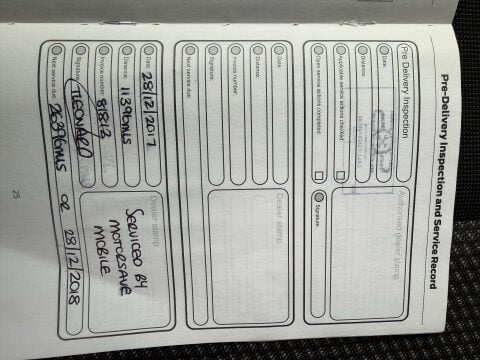 Pre-Delivery Inspection and Service Record
Pre Delivery Inspection
Date:
Distance:
Applicable service actions checked:
Open service actions completed:
Authorised dealer stamp
Signature:
Date:
Distance:
Invoice number:
Signature:
Next service due:
Dealer stamp
Date: 28/12/2017
Distance: 11396MLS
Invoice number: 81812
Signature: T LEONARD
Next service due: 26396MLS OR 28/12/2018
Dealer stamp
SERVICED BY
MOTORSAVE
MOBILE
25